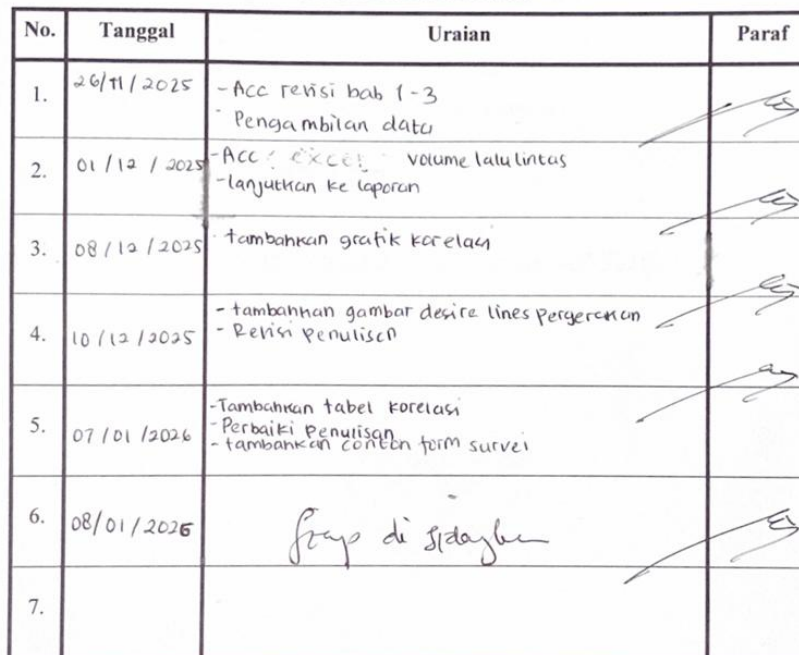 No. Tanggal Uraian Paraf
1. 26/11/2025 - Acc revisi bab 1-3
- Pengambilan data
2. 01/12/2025 - Acc excel volume lalulintas
- lanjutkan ke laporan
3. 08/12/2025 - tambahkan grafik korelasi
4. 10/12/2025 - tambahkan gambar desire lines pergerakan
- Revisi penulisan
5. 07/01/2026 - Tambahkan tabel korelasi
- Perbaiki penulisan
- tambahkan contoh form survei
6. 08/01/2026 Siap di sidangkan
7.